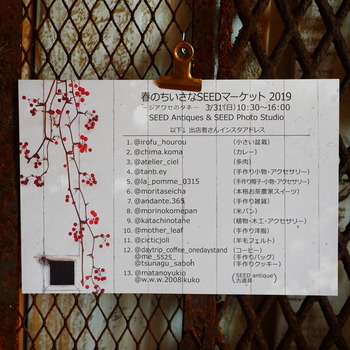 春のちいさなSEEDマーケット 2019
―ジアワセのタネ― 3/31(日)10:30~16:00
SEED Antiques & SEED Photo Studio
以下、出店者さんインスタアドレス
1. @irofu_hourou (小さい盆栽)
2. @chima.koma (カレー)
3. @atelier_ciel (多肉)
4. @tanb.ey (手作り小物・アクセサリー)
5. @la_pomme_0315 (手作り帽子・小物・アクセサリー)
6. @moritaseicha (本格お茶農家スイーツ)
7. @andante.365 (手作り雑貨)
8. @morinokomepan (米パン)
9. @katachinotane (植物・木工・アクセサリー)
10. @mother_leaf (手作り洋服)
11. @cicticjoli (羊毛フェルト)
12. @daytrip_coffee_onedaystand (コーヒー)
@me_5525_ (手作りバッグ)
@tsunagu_saboh (手作りクッキー)
13. @matanoyukio (SEED antique)
@w.w.w.2008ikuko (古道具)